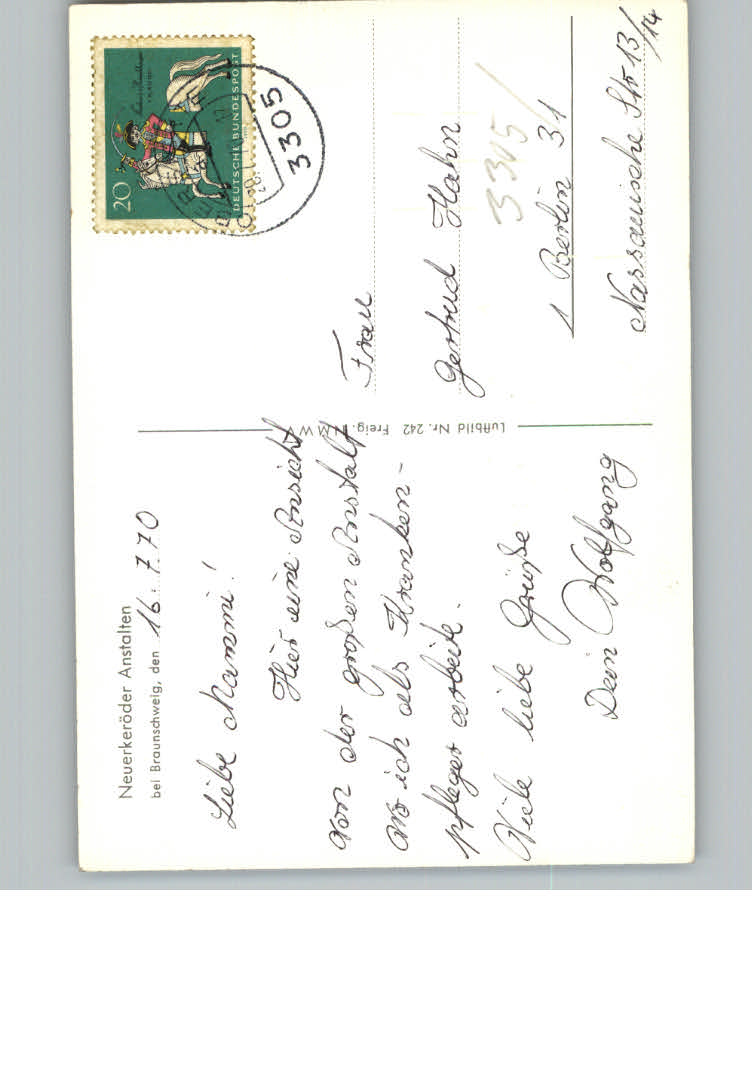 Neuerkeröder Anstalten
bei Braunschweig, den 16. 7. 70
Liebe Mammi!
Hier eine Ansicht
von der großen Anstalt
wo ich als Kranken-
pfleger arbeite.
Viele liebe Grüße
Dein Wolfgang
Luftbild Nr. 242 Freig.
20
DEUTSCHE BUNDESPOST
3305
Frau
Gertrud Hahn
3305
1 Berlin 31
Nassauische Str 13/14